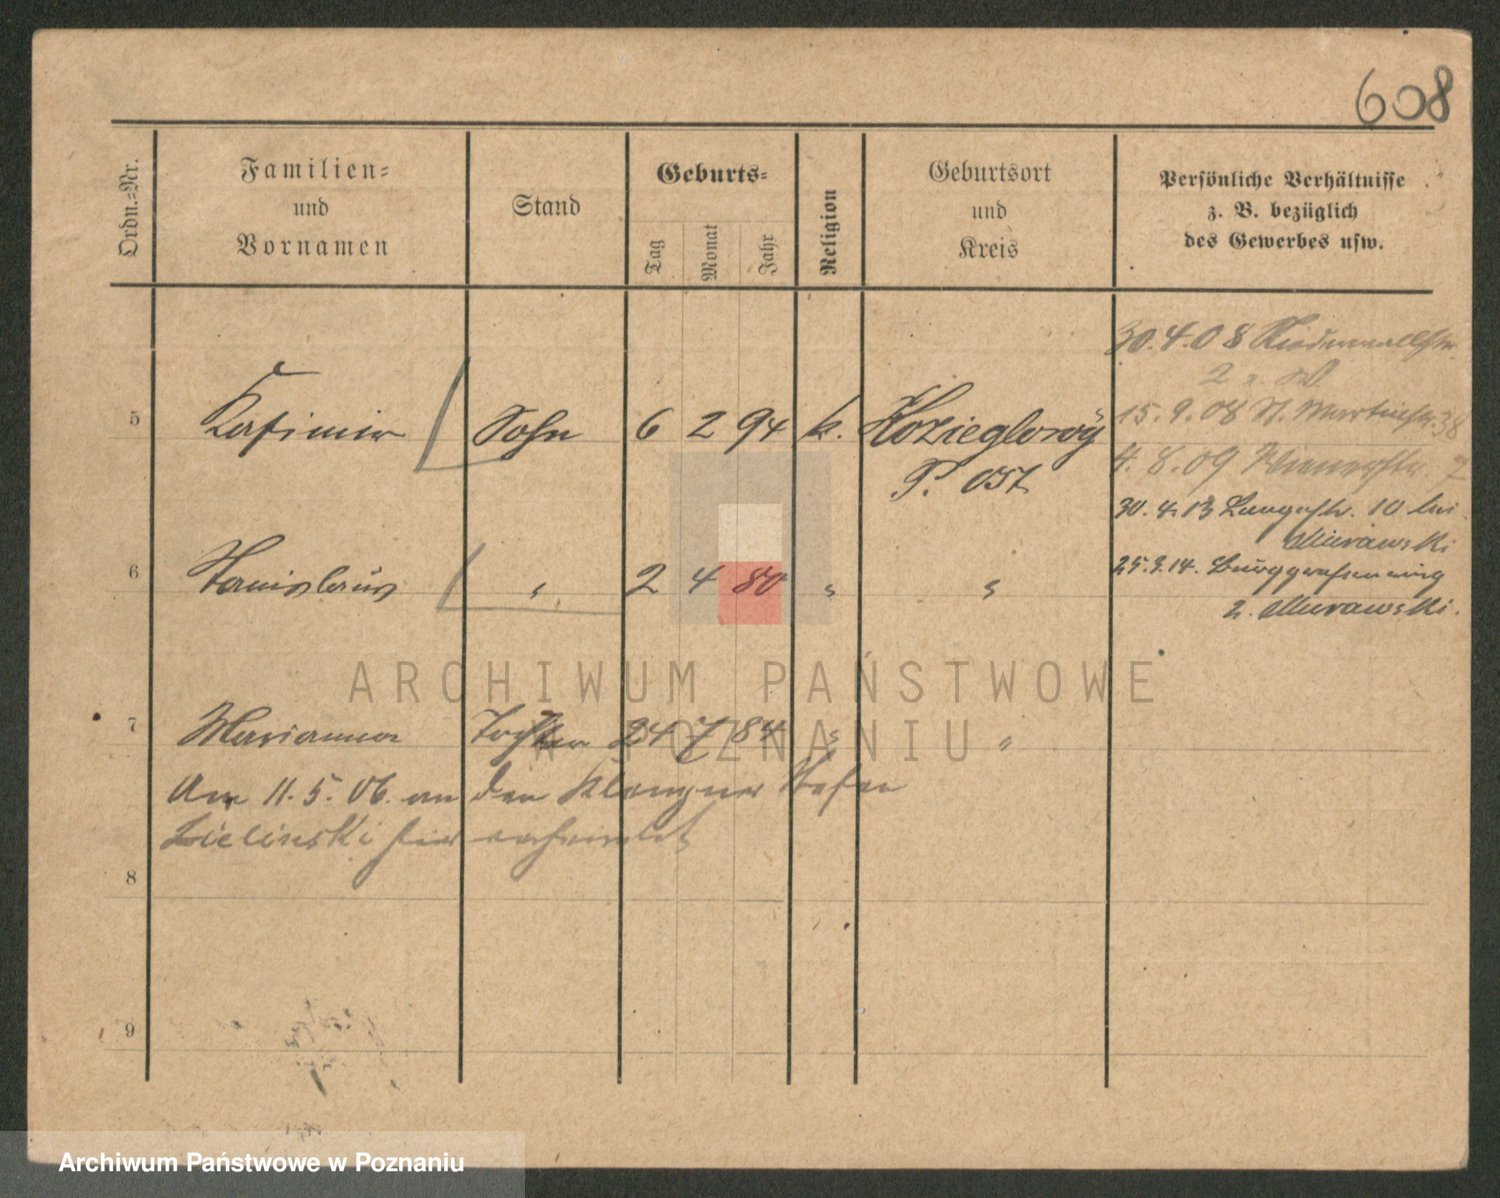 608
Ordn.-Nr.
Familien-
und
Vornamen
Stand
Geburts-
Tag
Monat
Jahr
Religion
Geburtsort
und
Kreis
Persönliche Verhältnisse
z. B. bezüglich
des Gewerbes usw.
30.4.08
2
15.9.08 St. Martinstr. 38
4.8.09
5 Kasimir Sohn 6 2 94 k. Kozieglowy
P. Ost
30.4.13 Langestr. 10 bei
Murawski
6 Stanislaus " 2 4 80 " "
25.3.14.
z. Murawski.
7 Marianna Tochter 24 7 84 " "
Am 11.5.06. an den Klempner Stefan
Zielinski hier verheiratet
8
9
ARCHIWUM PAŃSTWOWE
W POZNANIU
Archiwum Państwowe w Poznaniu